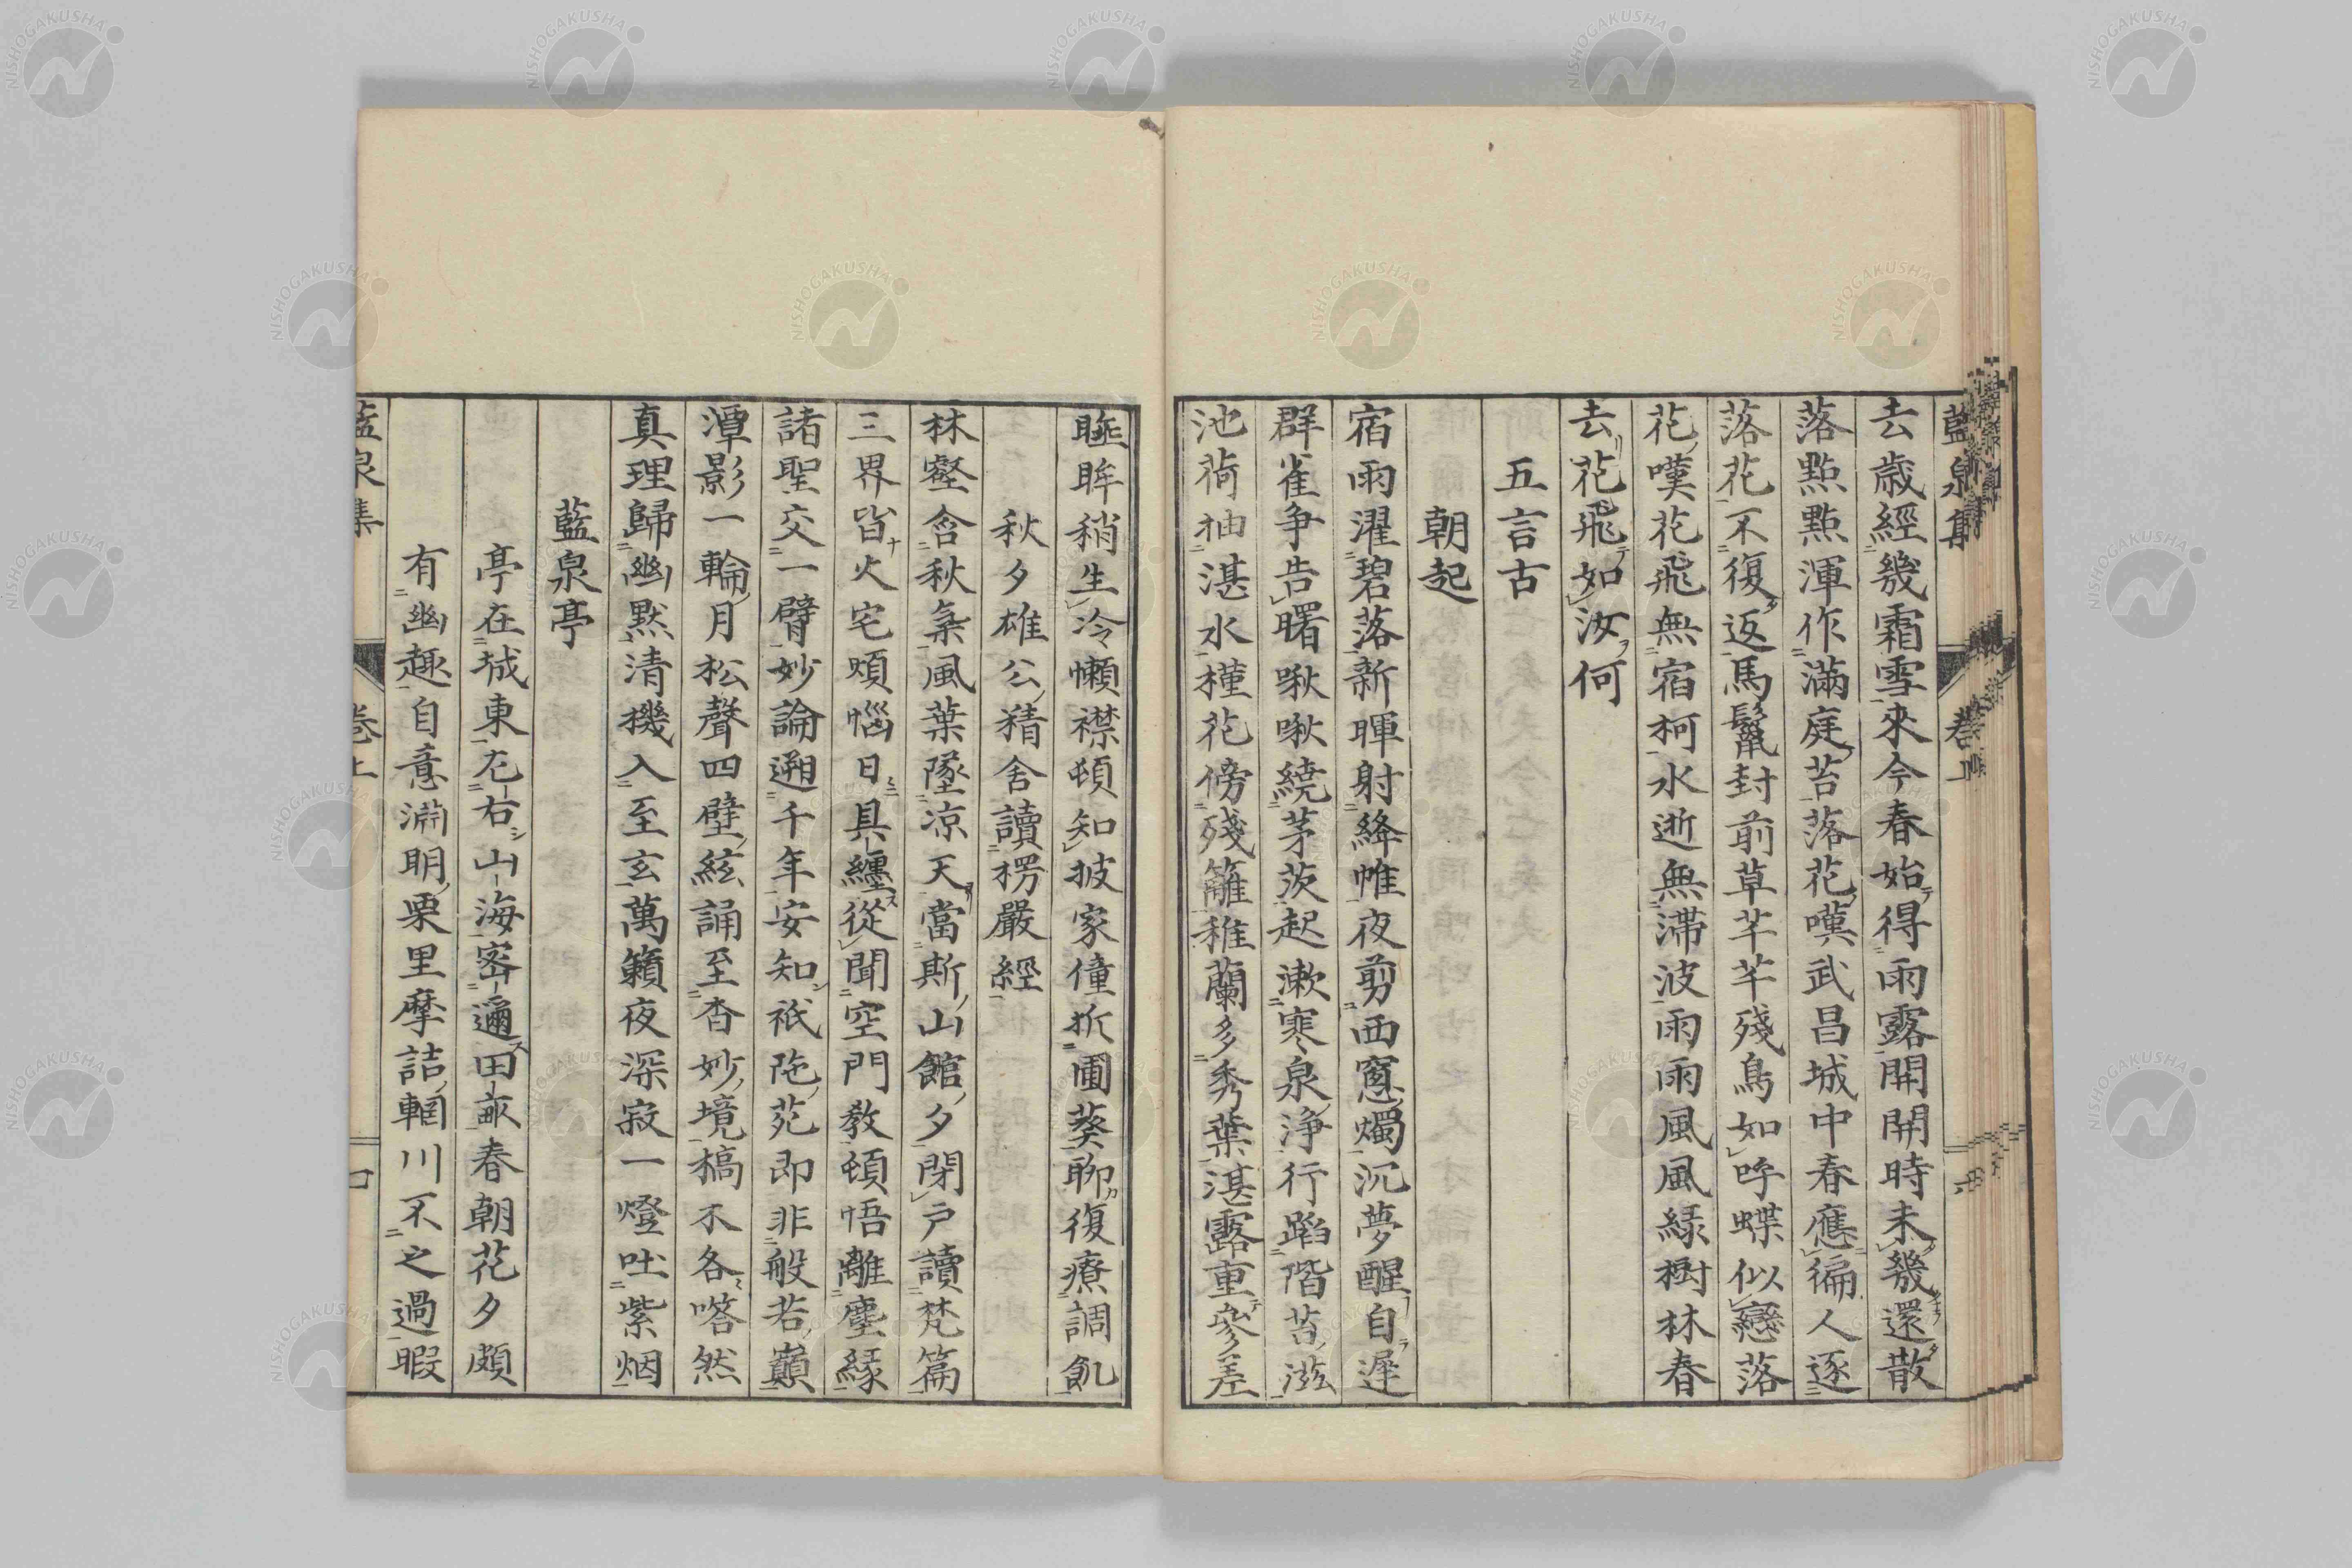 藍泉集 卷上
去歳經幾霜雪來今春始得雨露開開時未幾還散
落點點渾作滿庭苔落花嘆武昌城中春應徧人逐
落花不復返馬鬣封前草芊芊殘鳥如呼蝶似戀落
花嘆花飛無宿柯水逝無滯波雨雨風風緑樹林春
去花飛如汝何
五言古
朝起
宿雨濯碧落新暉射絳帷夜剪西窓燭沉夢醒自遲
群雀争告曙啾啾繞茅茨起漱寒泉浄行蹈階苔滋
池荷抽湛水槿花傍殘籬稚蘭多秀葉湛露重參差
眵眸稍生冷懶襟頓知披家僮折圃葵聊復療調飢
秋夕雄公精舍讀楞嚴經
林壑含秋氣風葉墜凉天當斯山館夕閉戸讀梵篇
三界皆火宅煩惱日具纏從聞空門教頓悟離塵縁
諸聖交一臂妙論遡千年安知祇陁苑即非般若巓
潭影一輪月松聲四壁絃誦至杳妙境槁木各嗒然
真理歸幽默清機入至玄萬籟夜深寂一燈吐紫烟
藍泉亭
亭在城東左右山海密邇田畝春朝花夕頗
有幽趣自意淵明栗里摩詰輞川不之過暇
藍泉集 卷上 四
NISHOGAKUSHA